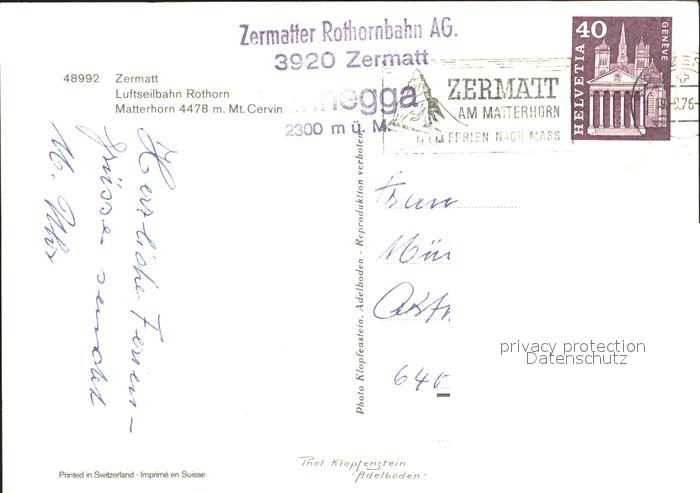 Zermatter Rothornbahn AG.
3920 Zermatt
nnegga
2300 m ü. M.
48992 Zermatt
Luftseilbahn Rothorn
Matterhorn 4478 m. Mt. Cervin
ZERMATT
AM MATTERHORN
FERIEN NACH MASS
40
HELVETIA
GENEVE
Herzliche Ferien-
grüsse sendet
M.
Photo Klopfenstein, Adelboden - Reproduktion verboten
Frau
Mün
640
privacy protection
Datenschutz
Printed in Switzerland - Imprimé en Suisse
Phot. Klopfenstein
-Adelboden-